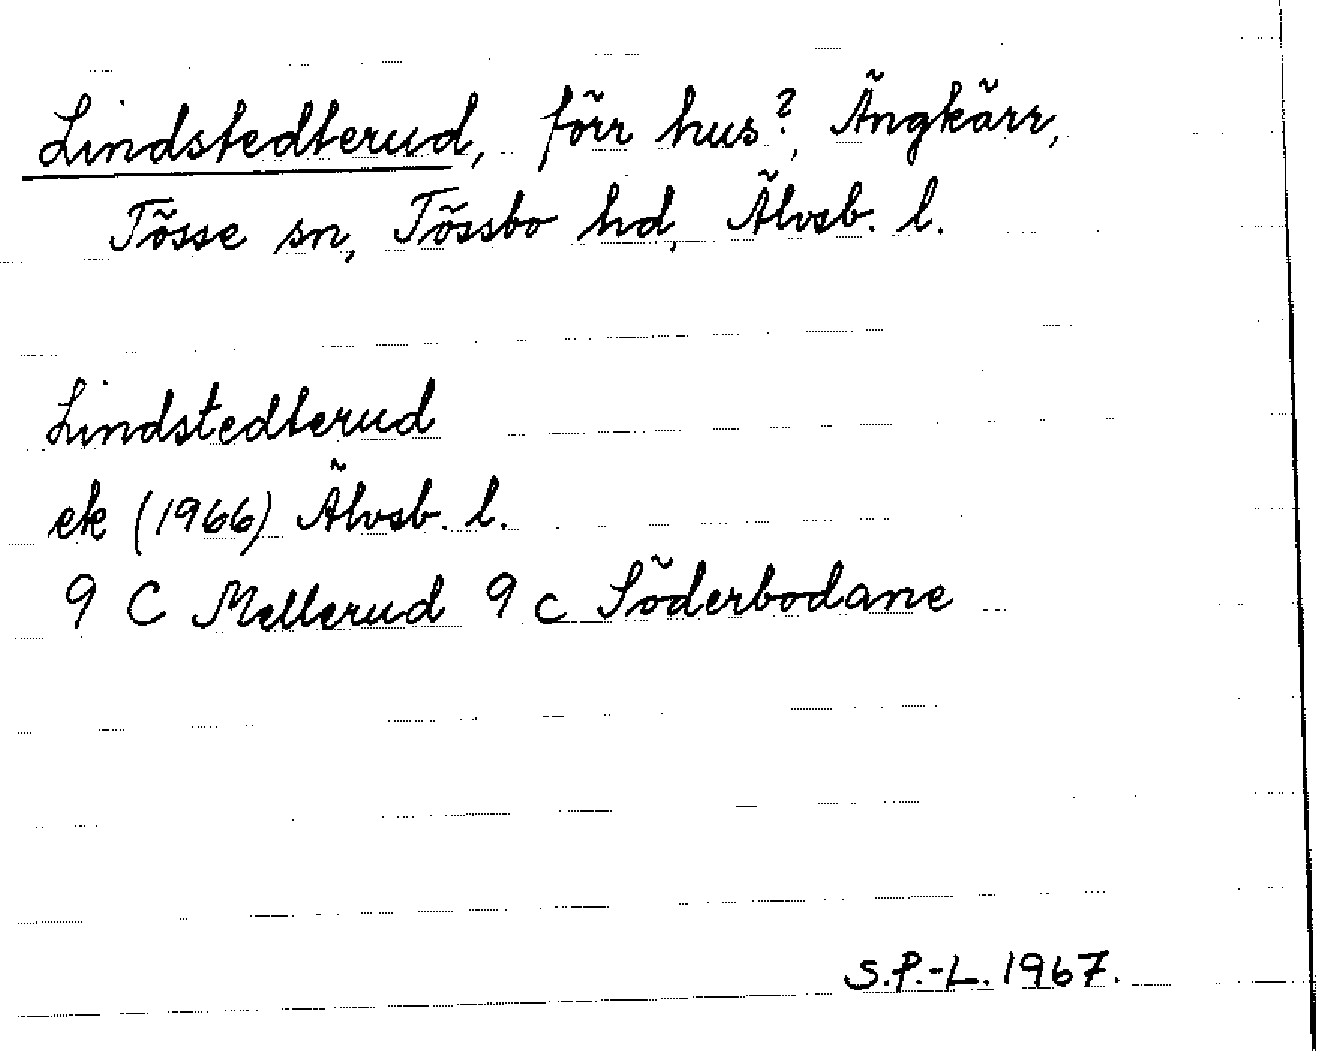 Lindstedterud, förr hus?, Ängkärr,
Tösse sn, Tössbo hd, Älvsb. l.
Lindstedterud
ek (1966) Älvsb. l.
9 C Mellerud 9 c Söderbodane
S.P.-L. 1967.